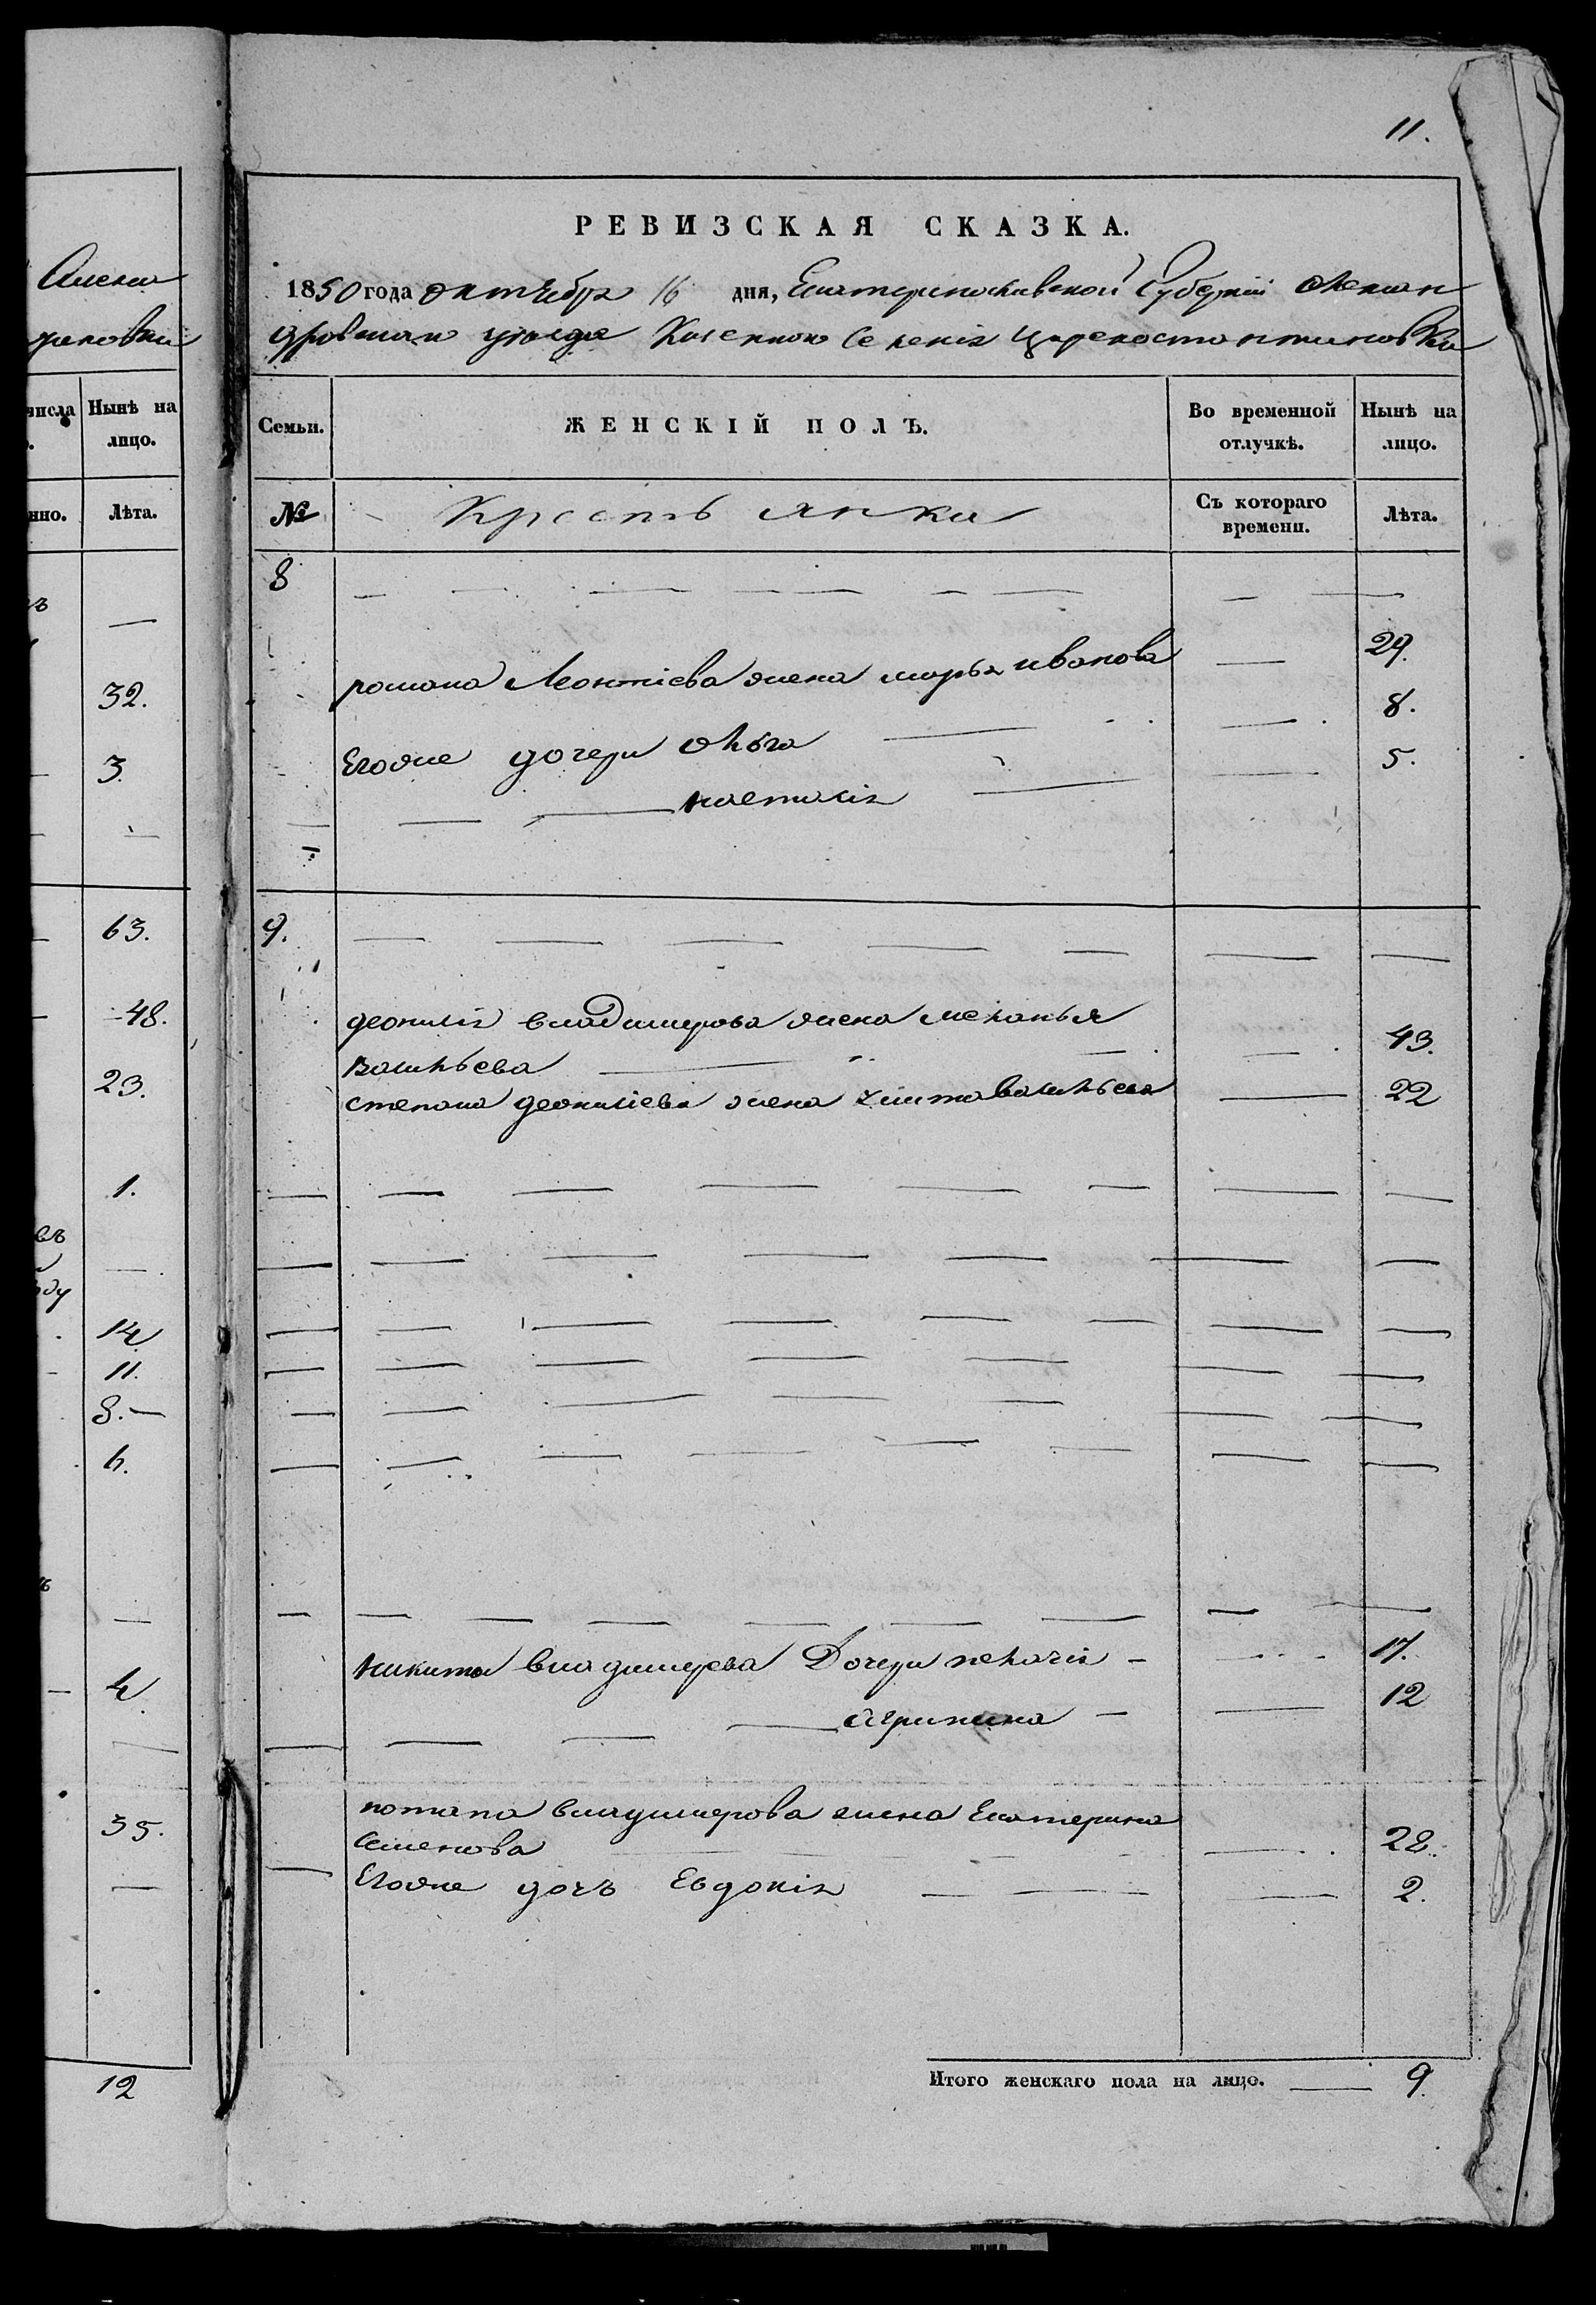 11.
РЕВИЗСКАЯ СКАЗКА.
1850 года октября 16 дня, Екатеринославской Губернии Алексан
дровскаго уезда Казенного Селения Цареконстантиновки
Семьи.
ЖЕНСКІЙ ПОЛЪ.
Во временной отлучкѣ.
Нынѣ на лицо.
№
Крестьянки
Съ котораго времени.
Лѣта.
8
романа Леонтиева жена марья иванова — 29.
Егоже дочери ольга — 8.
наталия — 5.
9.
деонисия владимерова жена меланья
васильева — 43.
степана деонисиева жена васильева — 22
никиты владимерова Дочери пелагия — 17.
агрипина — 12
потапа владимерова жена Екатерина
Семенова — 28.
Егоже дочь Евдокия — 2.
Итого женскаго пола на лицо. — 9.
Алекса
числа
Нынѣ на лицо.
Лѣта.
32.
3.
63.
48.
23.
1.
14
11.
8.
6.
4
35.
12